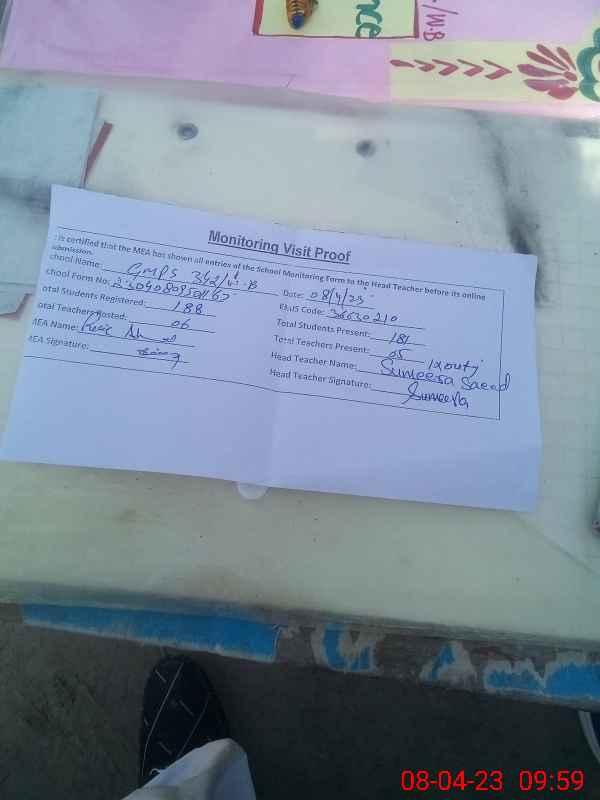 /W.B
nce
Monitoring Visit Proof
is certified that the MEA has shown all entries of the School Monitoring Form to the Head Teacher before its online
submission.
chool Name: GMPS 342/W.B
Date: 08/4/23
chool Form No:
EMIS Code: 36630210
otal Students Registered: 188
Total Students Present: 181
otal Teachers Posted: 06
Total Teachers Present: 05
MEA Name:
Head Teacher Name: Sumeera Saeed
MEA Signature:
Head Teacher Signature: Sumeera
08-04-23 09:59